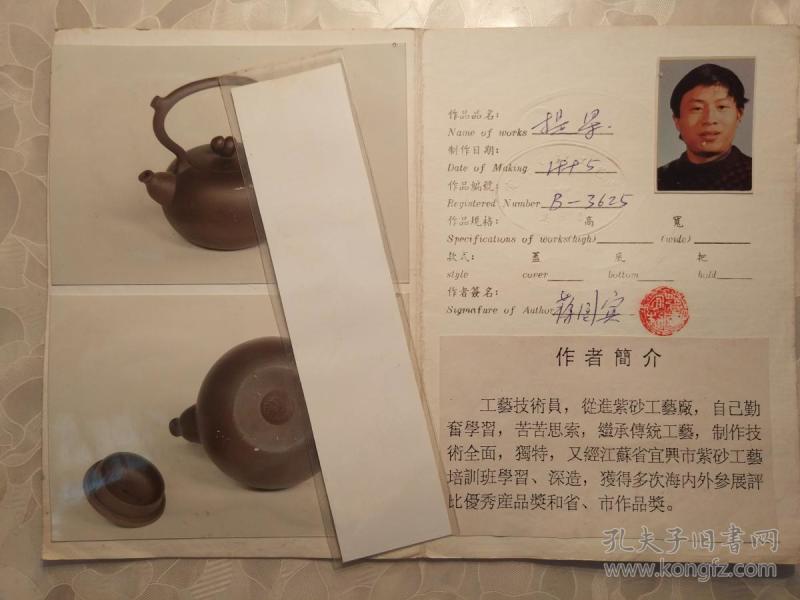 作品品名:
Name of works 提梁.
制作日期:
Date of Making 1995
作品編號:
Registered Number B-3625
作品規格: 高 寬
Specifications of works(high) (wide)
款式: 蓋 底 把
style cover bottom hold
作者簽名:
Signature of Author 蔣国寅
作者簡介
工藝技術員,從進紫砂工藝廠,自己勤
奮學習,苦苦思索,繼承傳統工藝,制作技
術全面,獨特,又經江蘇省宜興市紫砂工藝
培訓班學習、深造,獲得多次海内外參展評
比優秀産品獎和省、市作品獎。
孔夫子旧书网
www.kongfz.com